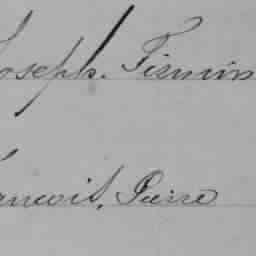 Joseph. Firmin
Benoit, Pierre